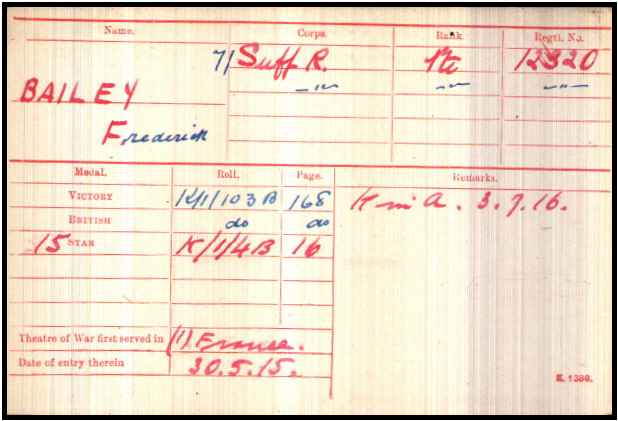 Name. Corps. Rank. Regtl. No.
7/ Suff R. Pte 12320
BAILEY —"— —"— —"—
Frederick
Medal. Roll. Page. Remarks.
VICTORY K/1/103B 168 K in A. 3.7.16.
BRITISH do do
15 STAR K/1/4B 16
Theatre of War first served in (1) France.
Date of entry therein 30.5.15.
K. 1380.